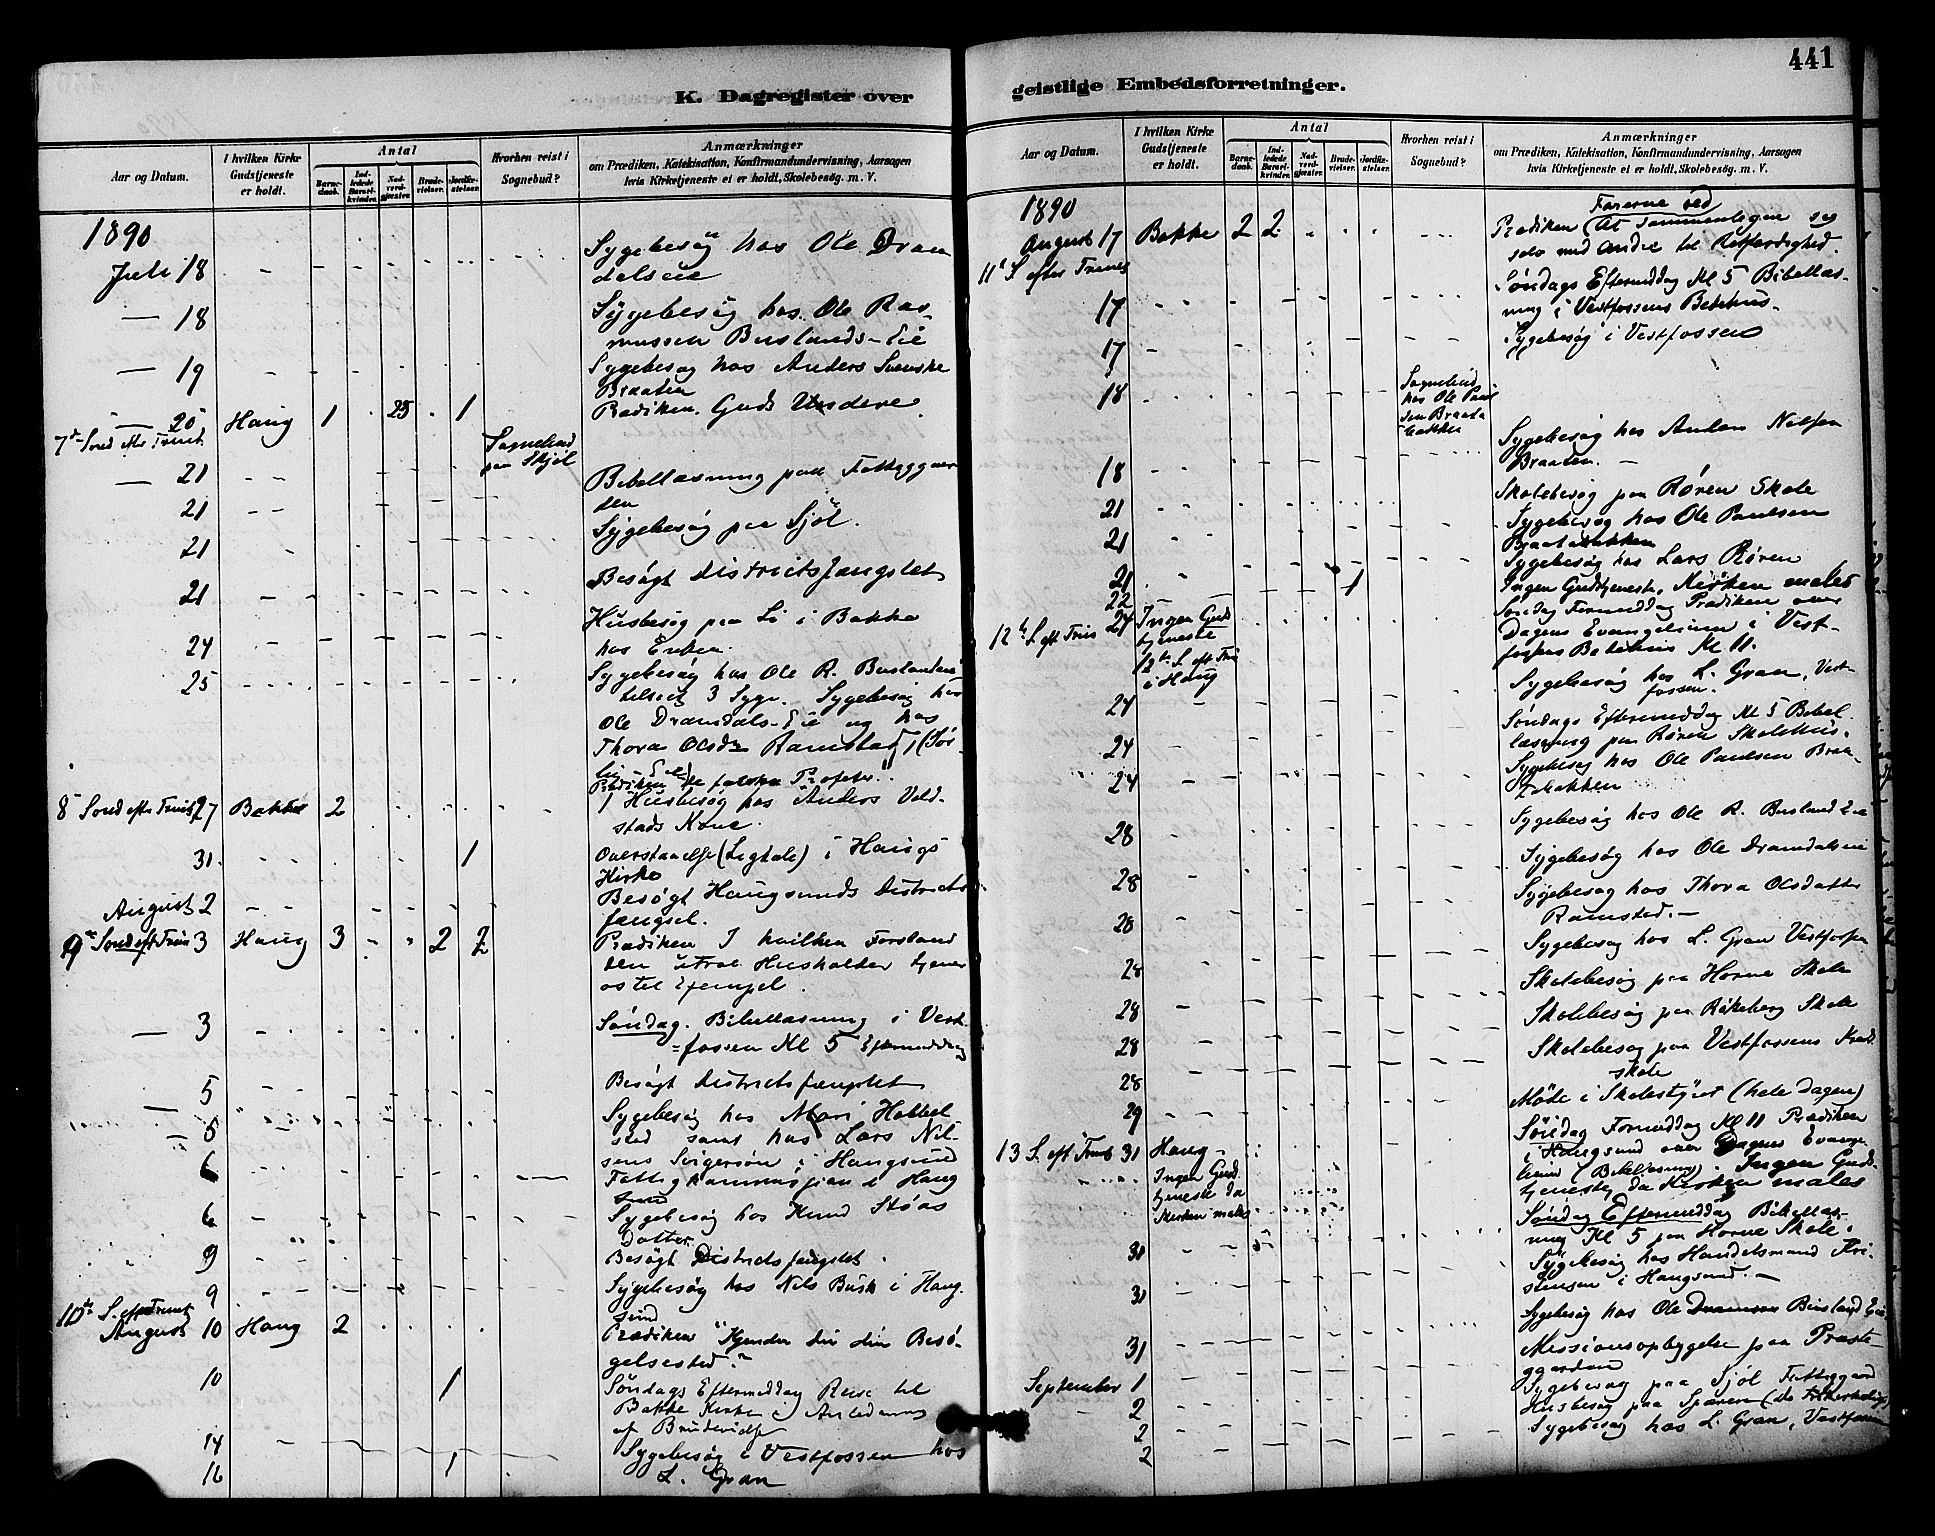 441
K. Dagregister over
geistlige Embedsforretninger.
Aar og Datum.
I hvilken Kirke
Gudstjeneste
er holdt.
Antal
Barne-
daab.
Ind-
ledede
Barsel-
kvinder.
Nad-
verd-
gjester.
Brude-
vielser.
Jordfæ-
stelser.
Hvorhen reist i
Sognebud?
Anmærkninger
om Prædiken, Katekisation, Konfirmandundervisning, Aarsagen
hvis Kirketjeneste ei er holdt, Skolebesøg. m. V.
1890
Juli 18 Sygebesøg hos Ole Dram
dalseie
18 Sygebesøg hos Ole Ras-
mussen Buslands-Eie
19 Sygebesøg hos Anders Svenske
Braaten
20 Haug 1 25 1 Prædiken. Guds Undere
7de Sønd eftr Trinit.
Sognebud
paa Sjøl
21 Bibellæsning paa Fattiggaar
den
21 Sygebesøg paa Sjøl.
21 Besøgt Districtsfængslet
21 Husbesøg paa Li i Bakke
hos Enken.
24 Sygebesøg hos Ole R. Buslandseie
25 tilsiet 3 Syge. Sygebesøg hos
Ole Dramdals-Eie og hos
Thora Olsdr Ramstad
Prædiken de falske Profeter
8 Sønd eftr Trinit 27 Bakke 2 Husbesøg hos Anders Vold-
stads Kone.
31 1 Overstaaelse (Ligtale) i Haugs
Kirke
August 2 Besøgt Haugsunds Districts
fængsel.
9de Sønd eft Trin 3 Haug 3 2 2 Prædiken I hvilken Forstand
den utro Husholder tjener
os til Exempel.
3 Søndag. Bibellæsning i Vest-
fossen Kl 5 Eftermiddag
5 Besøgt Districtsfængslet
5 Sygebesøg hos Mari Hobbel
stad samt hos Lars Nil-
sens Svigersøn i Haugsund
6 Fattigkommissjon i Haug
sund
6 Sygebesøg hos Knud Støas
Datter
9 Besøgt Districtsfængslet.
9 Sygebesøg hos Nils Busk i Haug-
sund
10de S. eft Trinit
August 10 Haug 2 Prædiken "Kjender din Besø-
gelsestid."
10 1 Søndags Eftermiddag Reise til
Bakke Kirke i Anledning
af Brudevielse
14 Sygebesøg i Vestfossen hos
16 1 L. Gran
Aar og Datum.
I hvilken Kirke
Gudstjeneste
er holdt.
Antal
Barne-
daab.
Ind-
ledede
Barsel-
kvinder.
Nad-
verd-
gjester.
Brude-
vielser.
Jordfæ-
stelser.
Hvorhen reist i
Sognebud?
Anmærkninger
om Prædiken, Katekisation, Konfirmandundervisning, Aarsagen
hvis Kirketjeneste ei er holdt, Skolebesøg. m. V.
1890
Farerne ved
August 17 Bakke 2 2 Prædiken (At sammenligne seg
selv med andre til Retfærdighed.
11te S. efter Trinit
17 Søndags Eftermiddag Kl 5 Bibellæs-
ning i Vestfossens Bedehus
17 Sygebesøg i Vestfossen
18 Sognebud
hos Ole Paul
sen Braata
bakken
18 Sygebesøg hos Anders Nilsen
Braaten.
21 Skolebesøg paa Røren Skole
21 Sygebesøg hos Ole Paulsen
Braatabakken
21 Sygebesøg hos Lars Røren
22 1 Ingen Gudstjeneste, Kirken males
12te S. eft Trin 24 Ingen Guds
tjeneste
12te S. eft Tri
i Haug
Søndag Formiddag Prædiken over
Dagens Evangelium i Vest-
fossens Bedehus Kl 11.
24 Sygebesøg hos L. Gran, Vest-
fossen.
24 Søndags Eftermiddag Kl 5 Bibel
læsning paa Røren Skolehus.
24 Sygebesøg hos Ole Paulsen Braa
tabakken
28 Sygebesøg hos Ole R. Busland Eie
28 Sygebesøg hos Ole Dramdalseie
28 Sygebesøg hos Thora Olsdatter
Ramstad.
28 Sygebesøg hos L. Gran Vestfossen
28 Skolebesøg paa Horne Skole
28 Skolebesøg paa Røkeberg Skole
28 Skolebesøg paa Vestfossens Kreds
skole
29 Møde i Skolestyret (hele Dagen)
13 S. eft Trinit 31 Haug
Ingen Guds
tjeneste da
Kirken males
Søndag Formiddag Kl 11 Prædiken
i Haugsund over Dagens Evange
lium (Bibellæsning). Ingen Guds-
tjeneste, da Kirken males
31 Søndag Eftermiddag Bibellæs-
ning Kl 5 paa Horne Skole.
31 Sygebesøg hos Handelsmand Kri
stensen i Haugsund.
31 Sygebesøg hos Ole Busland Eie
September 1 Missionsopbyggelse paa Præste
ggarden
2 Sygebesøg paa Sjøl Fattiggaard
2 Husbesøg paa
2 Sygebesøg hos L. Gran, Vestfossen